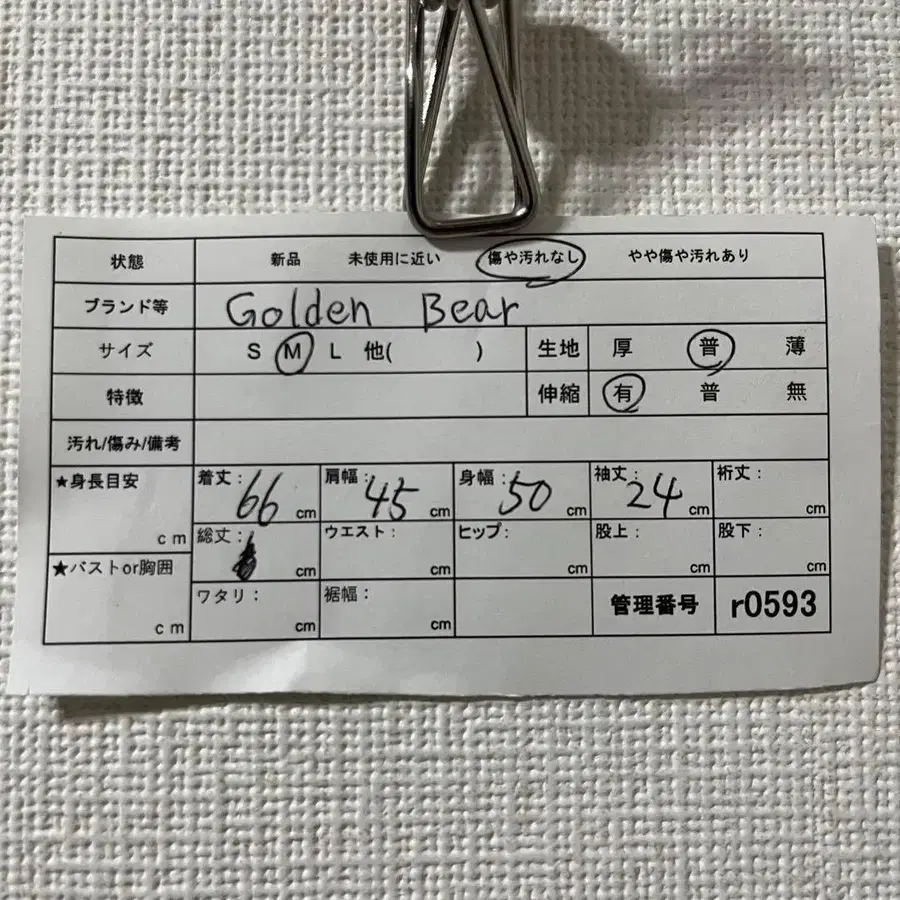 状態 新品 未使用に近い 傷や汚れなし やや傷や汚れあり
ブランド等 Golden Bear
サイズ S M L 他( ) 生地 厚 普 薄
特徴 伸縮 有 普 無
汚れ/傷み/備考
★身長目安 cm
着丈: 66 cm 肩幅: 45 cm 身幅: 50 cm 袖丈: 24 cm 裄丈: cm
総丈: cm ウエスト: cm ヒップ: cm 股上: cm 股下: cm
★バストor胸囲 cm
ワタリ: cm 裾幅: cm 管理番号 r0593